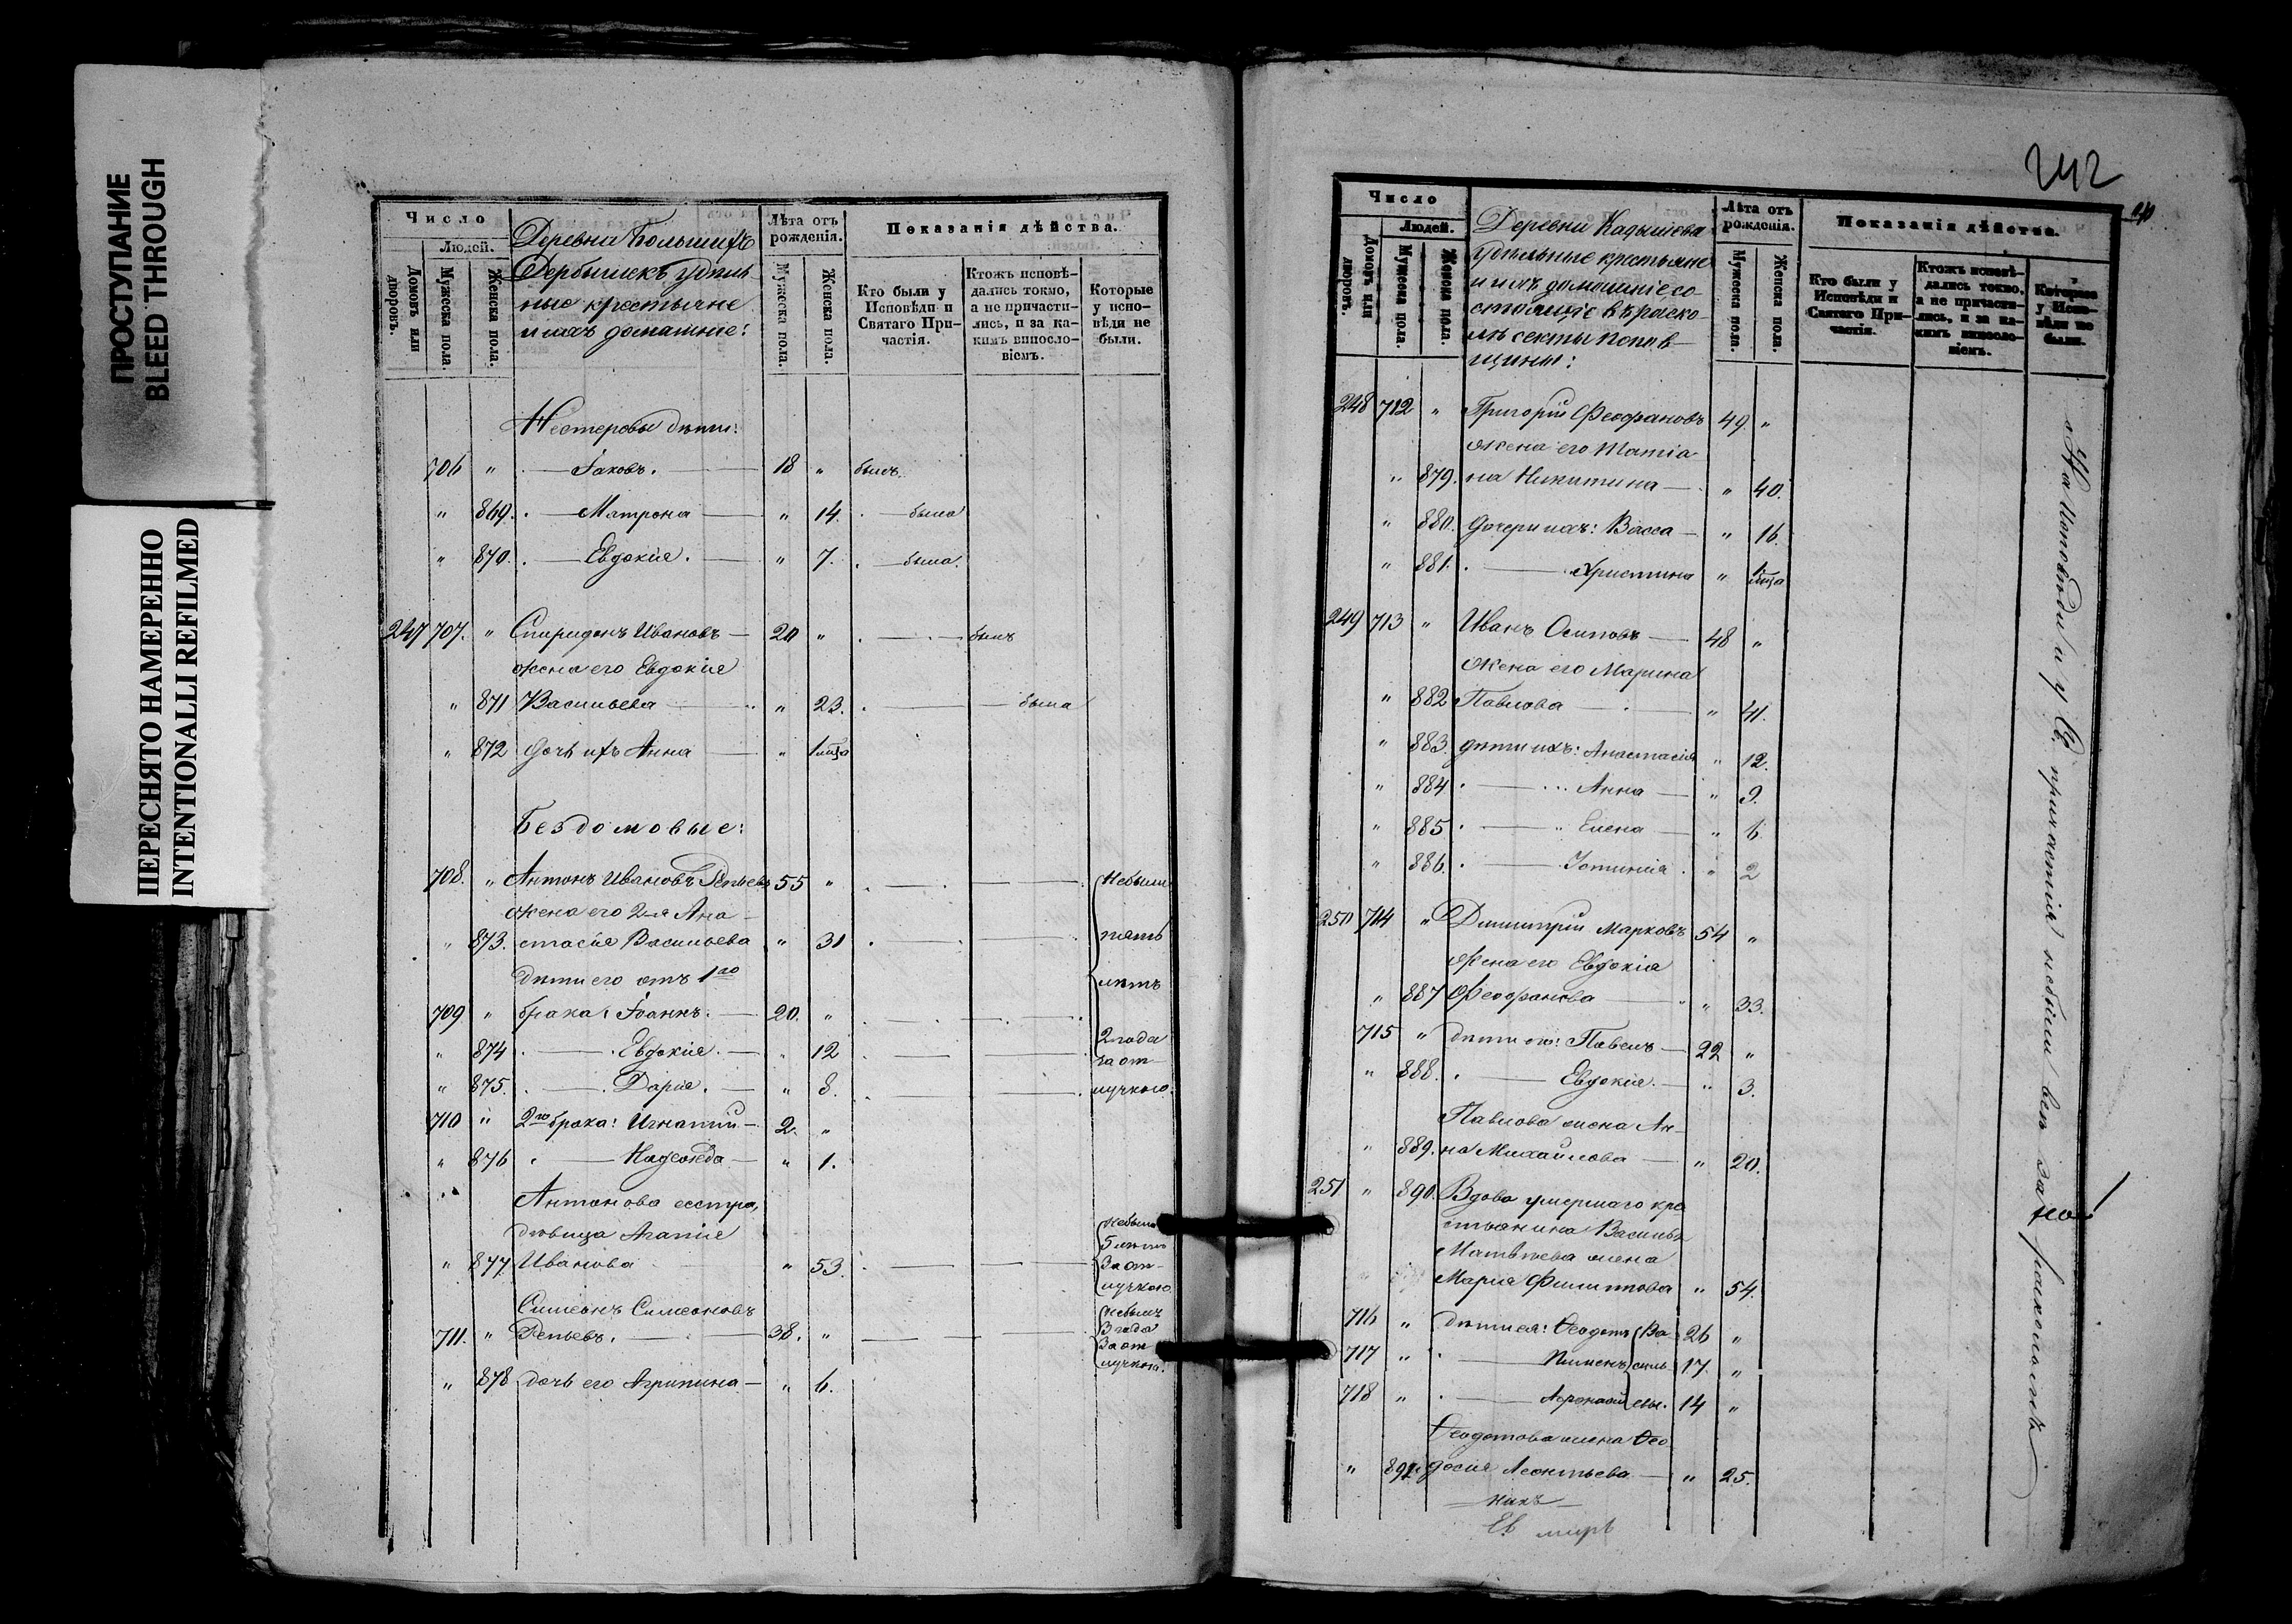 ПРОСТУПАНИЕ
BLEED THROUGH
ПЕРЕСНЯТО НАМЕРЕННО
INTENTIONALLI REFILMED
Число
Людей.
Домовъ или дворовъ.
Мужеска пола.
Женска пола.
Деревни Большихъ
Дербышекъ удѣль-
ные крестьяне
и ихъ домашніе:
Лѣта отъ рожденія.
Мужеска пола.
Женска пола.
Показанія дѣйства.
Кто были у Исповѣди и Святаго При-частія.
Ктожъ исповѣ-дались токмо, а не причасти-лись, и за ка-кимъ виносло-віемъ.
Которые у испо-вѣди не были.
Нестеровы дѣти:
706 " Іаковъ. 18 " былъ.
" 869. Матрона " 14. была
" 870. Евдокія. " 7. была.
247 707. " Спиридонъ Ивановъ 20 " былъ
жена его Евдокія
" 871 Васильева " 23. была
" 872 дочь ихъ Анна " 1 мца
Бездомовые:
708. " Антонъ Ивановъ Репьевъ 55 " Небыли
жена его 2-я Ана-
" 873. стасія Васильева " 31 пять
дѣти его отъ 1го лѣтъ
709 " брака: Іоаннъ. 20. "
" 874 Евдокія. " 12 2 года
за от-
" 875. Дарія. " 8. лучкою.
710 " 2го брака: Игнатій 2. "
" 876 Надежда " 1.
Антонова сестра,
дѣвица Агапія небыла
5 лѣтъ
" 877. Иванова " 53. За от-
лучкою
Симеонъ Симеоновъ небылъ
711. " Репьевъ. 38. " 3 года
За от-
лучкою.
" 878 дочь его Агрипина " 6.
242
Число
Людей.
Домовъ или дворовъ.
Мужеска пола.
Женска пола.
Деревни Кадышева
удѣльные крестьяне
и ихъ домашніе, со-
стоящіе въ раско-
лѣ секты попов-
щины:
Лѣта отъ рожденія.
Мужеска пола.
Женска пола.
Показанія дѣйства.
Кто были у Исповѣди и Святаго При-частія.
Ктожъ исповѣ-дались токмо, а не причасти-лись, и за ка-кимъ виносло-віемъ.
Которые у Испо-вѣди не были.
248 712 " Григорій Феофановъ 49. "
жена его Татіа-
" 879. на Никитина " 40.
" 880. дочери ихъ: Васса " 16.
" 881. Христина " 1 мца
249 713 " Иванъ Осиповъ 48 "
жена его Марина
" 882 Павлова " 41.
" 883. дѣти ихъ: Анастасія " 12.
" 884 Анна " 9.
" 885 Елена " 6.
" 886. Устинія " 2
250 714 " Димитрій Марковъ 54 "
жена его Евдокія
" 887 Феофанова " 33.
715 " дѣти его: Павелъ 22 "
" 888. Евдокія. " 3.
Павлова жена Ан-
" 889. на Михайлова " 20.
251 " 890. Вдова умершаго кре
стьянина Василья
Матвѣева жена
Марія Филиппова " 54.
716 " дѣти ея: Ѳеодотъ Ва- 26 "
717 " Пименъ силь- 17. "
718 " Афанасій евы. 14 "
Ѳеодотова жена Ѳео-
" 891 досія Леонтьева " 25.
На исповѣди и у Св. причастія небыли всѣ за расколомъ